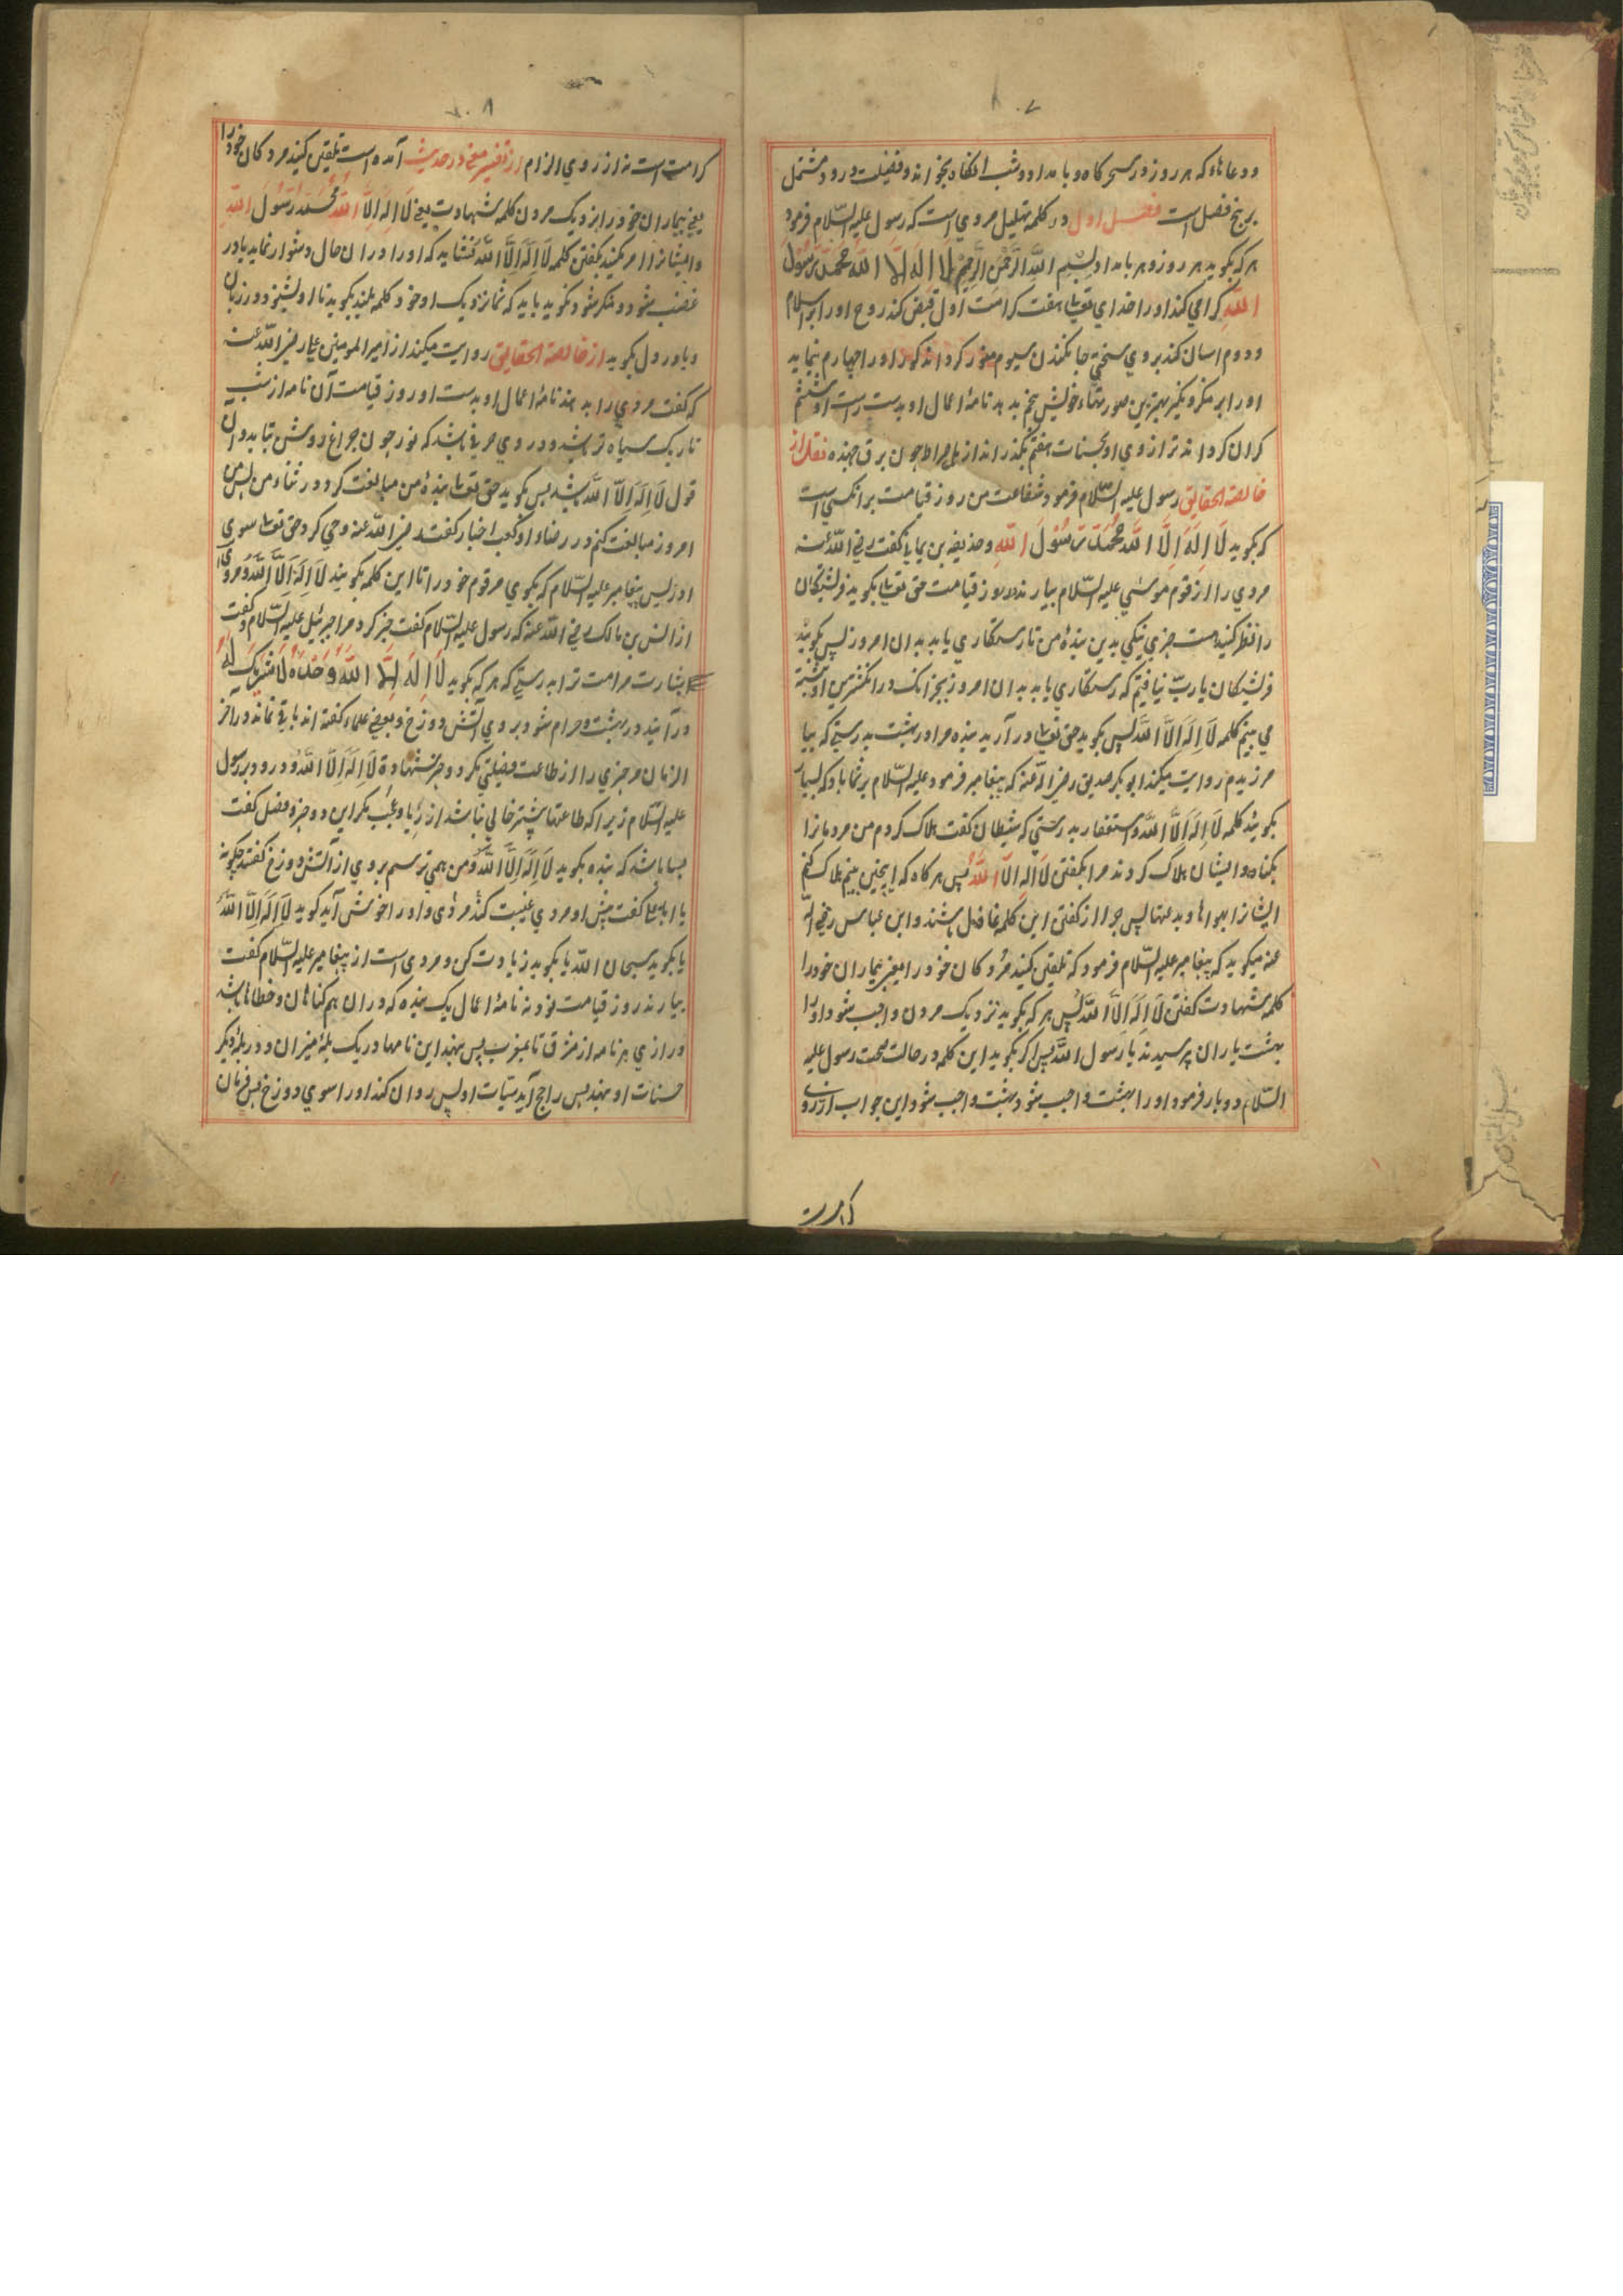 ودعاها که هر روز در سحرگاه و بامداد و شبانگاه بخواند و فضیلت درود مشتمل
بر پنج فصل است فصل اول در کلمه تهلیل مروی است که رسول علیه السلام فرمود
هر که بگوید هر روز و هر بامداد بسم الله الرحمن الرحیم لا اله الا الله محمد رسول
الله کرامی کند او را خدای تعالی هفت کرامت اول قبض کند روح او را بر اسلام
و دوم اسان کند بر وی سختی جان کندن سیوم منور کرداند کور او را چهارم بنماید
او را بر منکر و نکیر بهترین صورتها خویش پنجم بدهد نامهٔ اعمال او بدست راست او ششم
کران کرداند ترازوی او بحسنات هفتم بگذراند از پل صراط چون برق جهنده نقل از
خالصة الحقایق رسول علیه السلام فرمود شفاعت من روز قیامت بر انکسی است
که بگوید لا اله الا الله محمد رسول الله و حذیفه بن یمانی گفت رضی الله عنه
مردی را از قوم موسی علیه السلام بیارند روز قیامت حق تعالی بگوید فرشتکان
را نظر کنید هست چیزی نیکی بدین بندهٔ من تا رستکاری یابد بدان امروز پس بگویند
فرشتکان یا رب نیافتیم که رستکاری یابد بدان امروز بجز انک در انکشترین او نبشته
می بینیم کلمه لا اله الا الله پس بگوید حق تعالی در آرید بنده مرا در بهشت بدرستی که بیا
مرزیدم روایت میکند ابو بکر صدیق رضی الله عنه که پیغامبر فرمود علیه السلام بر شما باد که بسیار
بگویند کلمه لا اله الا الله و استغفار بدرستی که شیطان گفت هلاک کردم من مردمانرا
بکناه و ایشان هلاک کردند مرا بگفتن لا اله الا الله پس هر کاه که اینچنین بینم هلاک کنم
ایشانرا بهواها و بدعتها پس چرا از گفتن این کلمه غافل باشند و ابن عباس رضی الله
عنه میگوید که پیغامبر علیه السلام فرمود که تلقین کنید مردکان خود را یعنی بیماران خود را
کلمه شهادت گفتن لا اله الا الله پس هر که بگوید نزدیک مردن واجب شود او را
بهشت یاران پرسیدند یا رسول الله پس اکر بگوید این کلمه در حالت صحت رسول علیه
السلام دو بار فرمود او را بهشت واجب شود بهشت واجب شود این جواب از روی
کرامت
۷۰۸
کرامت است نه از روی الزام از تفسیر مغنی در حدیث آمده است تلقین کنید مردکان خود را
یعنی بیماران خود را نزدیک مردن کلمه شهادت یعنی لا اله الا الله محمد رسول الله
و ایشانرا امر مکنید بگفتن کلمه لا اله الا الله نشاید که او را دران حال دشوار نماید یا در
غضب شود و منکر شود نگوید باید که شما نزدیک او خود کلمه بلند بگوید تا او بشنود و در زبان
و یا در دل بگوید از خالصة الحقایق روایت میکند از امیر المومنین علی رضی الله عنه
که گفت مردی را بدهند نامهٔ اعمال او بدست او روز قیامت آن نامه از شب
تاریک سیاه تر باشد و در وی حرفی باشد که نور چون چراغ روشن بتابد و آن
قول لا اله الا الله باشد پس گوید حق تعالی بندهٔ من مبالغت کرد در ثناء من پس من
امروز مبالغت کنم در رضاء او کعب اخبار گفت رضی الله عنه وحی کرد حق تعالی سوی
ادریس پیغامبر علیه السلام که بگوی مر قوم خود را تا این کلمه بگویند لا اله الا الله و مروی
از انس بن مالک رضی الله عنه که رسول علیه السلام گفت خبر کرد مرا جبرئیل علیه السلام و گفت
بشارت مر امت ترا بدرستی که هر که بگوید لا اله الا الله وحده لا شریک له
در آیند در بهشت و حرام شود بر وی آتش دوزخ و بعضی علماء گفته اند باقی نماند در آخر
الزمان مر چیزی را از طاعت فضیلتی مکر دو چیز شهادة لا اله الا الله و درود بر رسول
علیه السلام زیرا که طاعتها بیشتر خالی نباشد از ریا و عجب مکر این دو چیز و فضل گفت
بسا باشد که بنده بگوید لا اله الا الله و من همی ترسم بر وی از آتش دوزخ گفتند چگونه
یا ابا علی گفت پیش او مردی غیبت کند مردی و او را خوش آید گوید لا اله الا الله
یا بگوید سبحان الله یا بگوید زیادت کن و مروی است از پیغامبر علیه السلام گفت
بیارند روز قیامت نود نه نامهٔ اعمال یک بنده که دران هم کناهان و خطاها باشد
درازی هر نامه از مشرق تا بمغرب پس بنهند این نامها در یک پلهٔ میزان و در پلهٔ دیکر
حسنات او بنهند پس راجح آید سیات او پس روان کنند او را سوی دوزخ پس فرمان